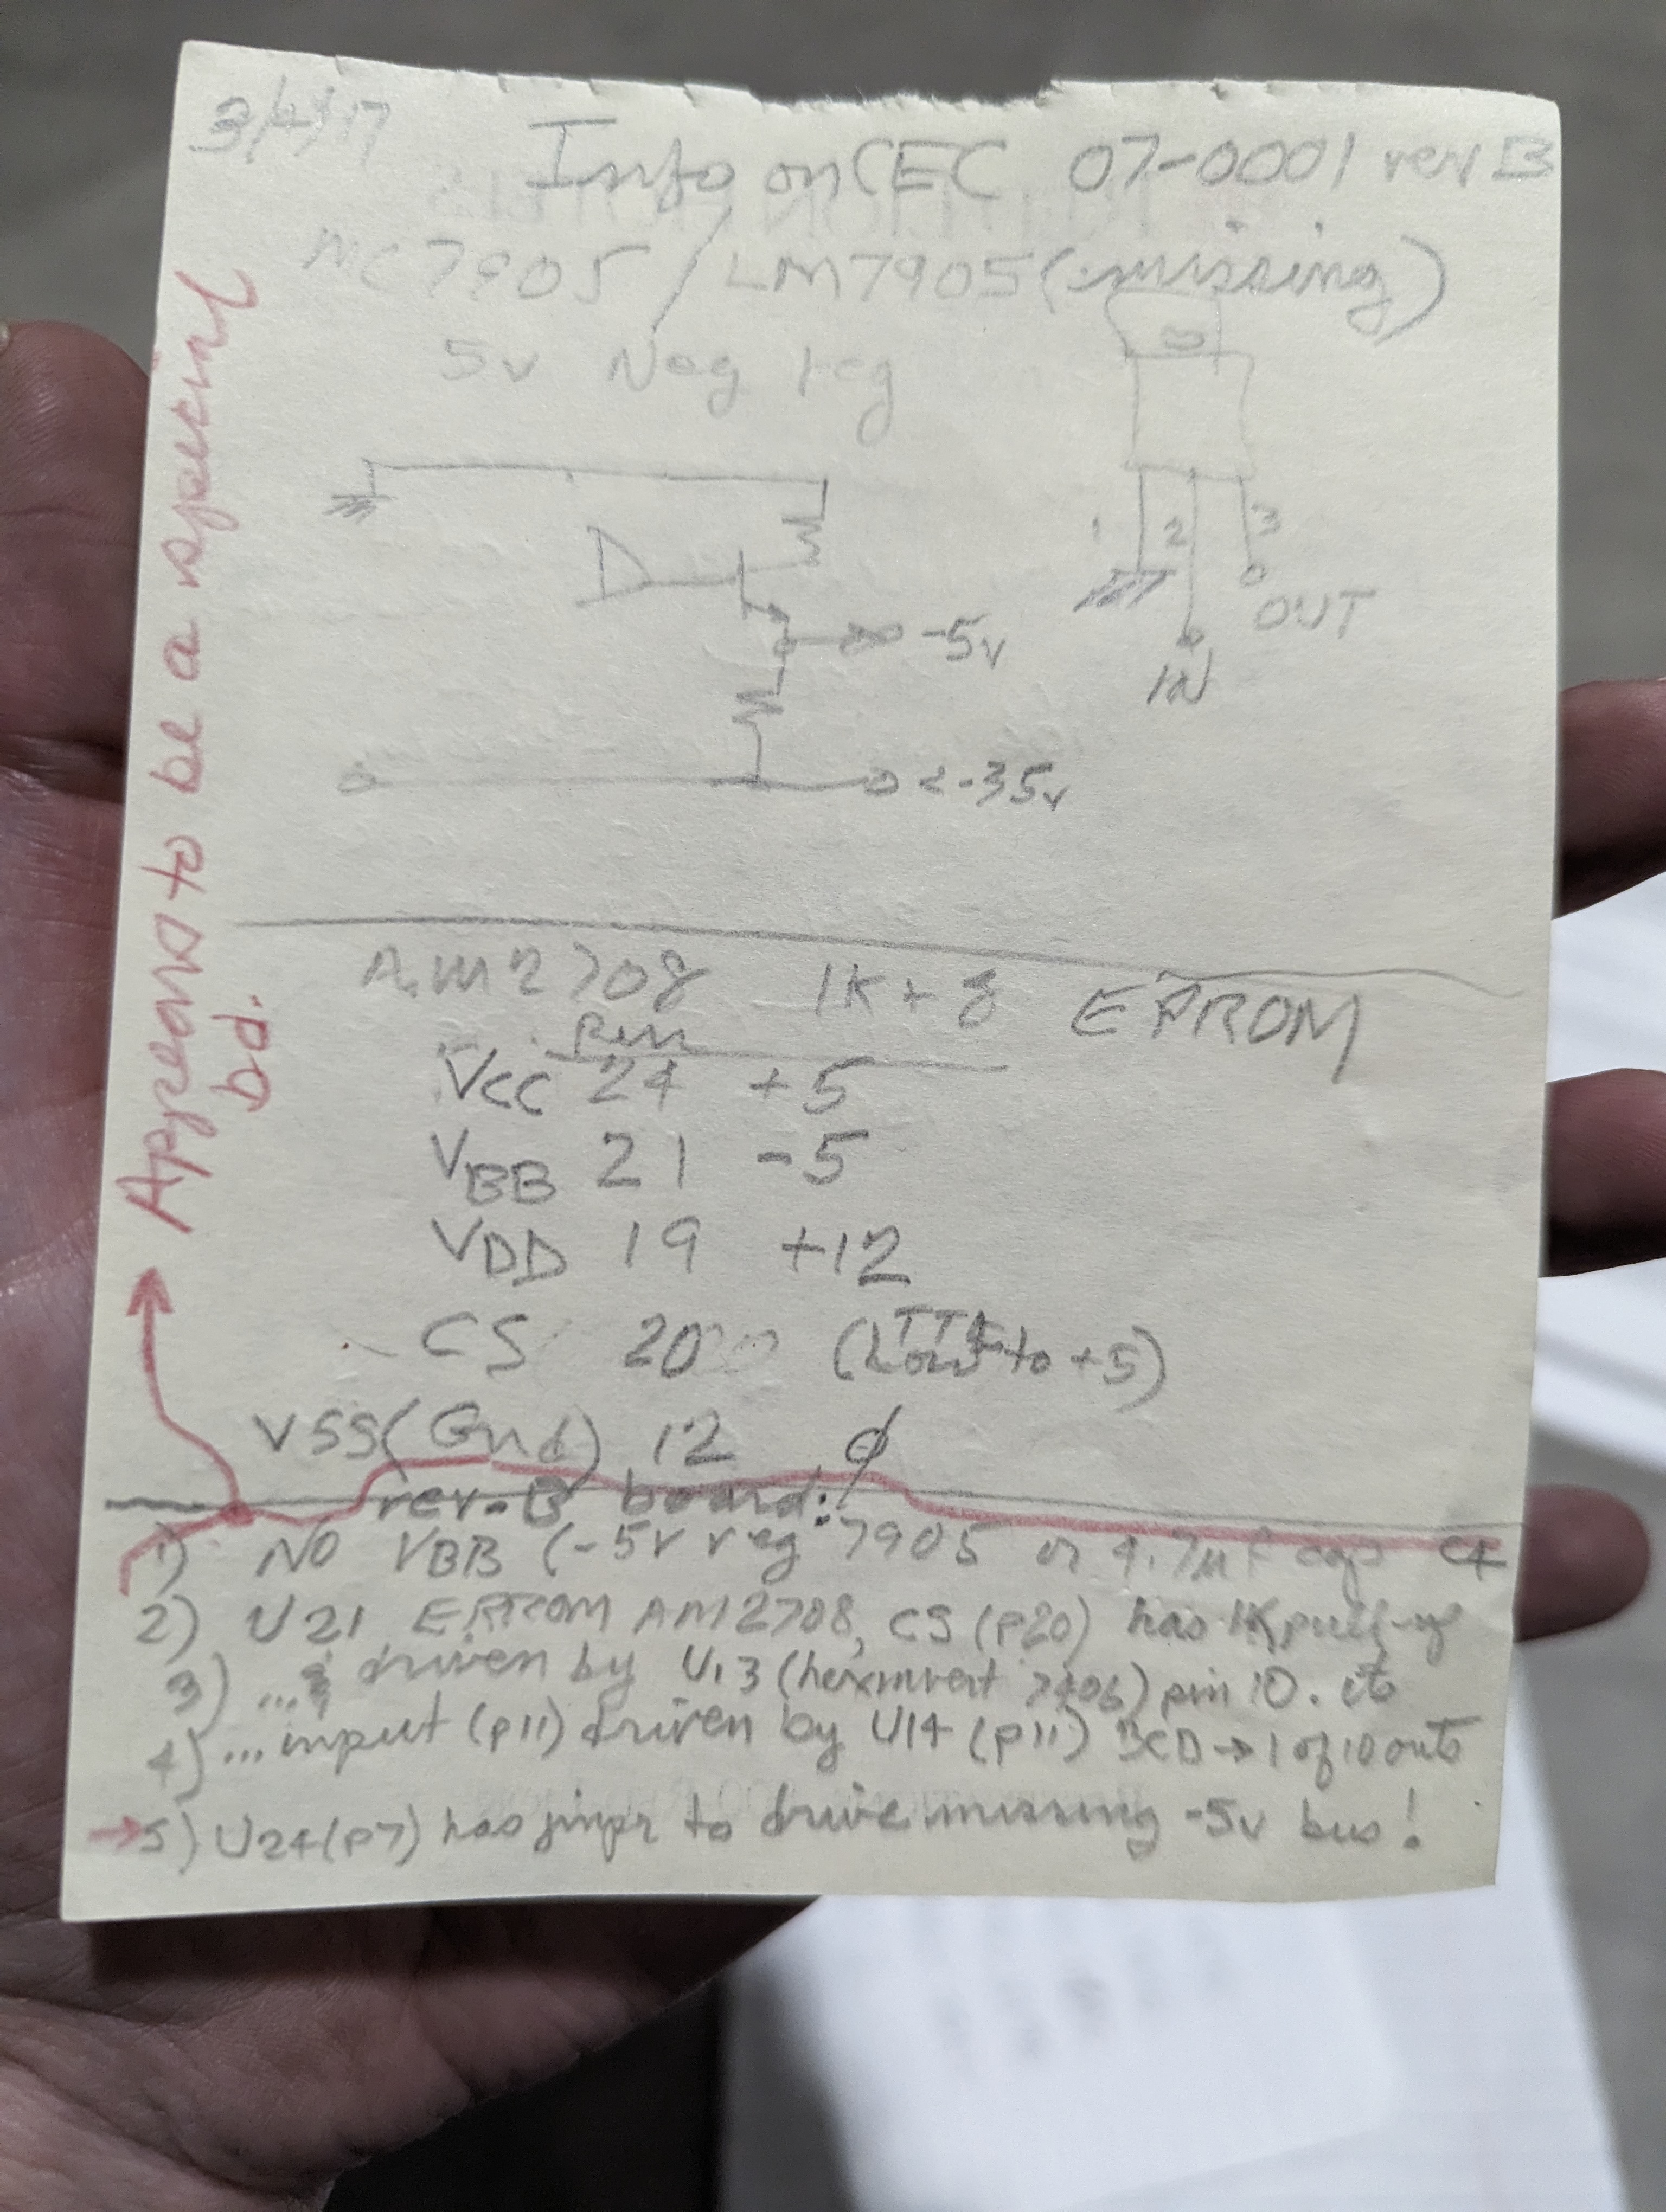 3/4/17
Info on CEC 07-0001 rev B
MC7905 / LM7905 (missing)
5v Neg reg
1 2 3
OUT
-5v
IN
<-35v
AM2708 1K+8 EPROM
Pin
VCC 24 +5
VBB 21 -5
VDD 19 +12
CS 20 (Low to +5)
TTL
VSS (Gnd) 12 ϕ
rev-B board:
1) NO VBB (-5v reg 7905 or 4.7µf cap C4
2) U21 EPROM AM2708, CS (p20) has 1K pull-up
3) ...& driven by U13 (hexinvert 7406) pin 10. its
4) ...input (p11) driven by U14 (p11) BCD→1 of 10 outs
→5) U24(p7) has jmpr to drive missing -5v bus!
Appears to be a special
bd.